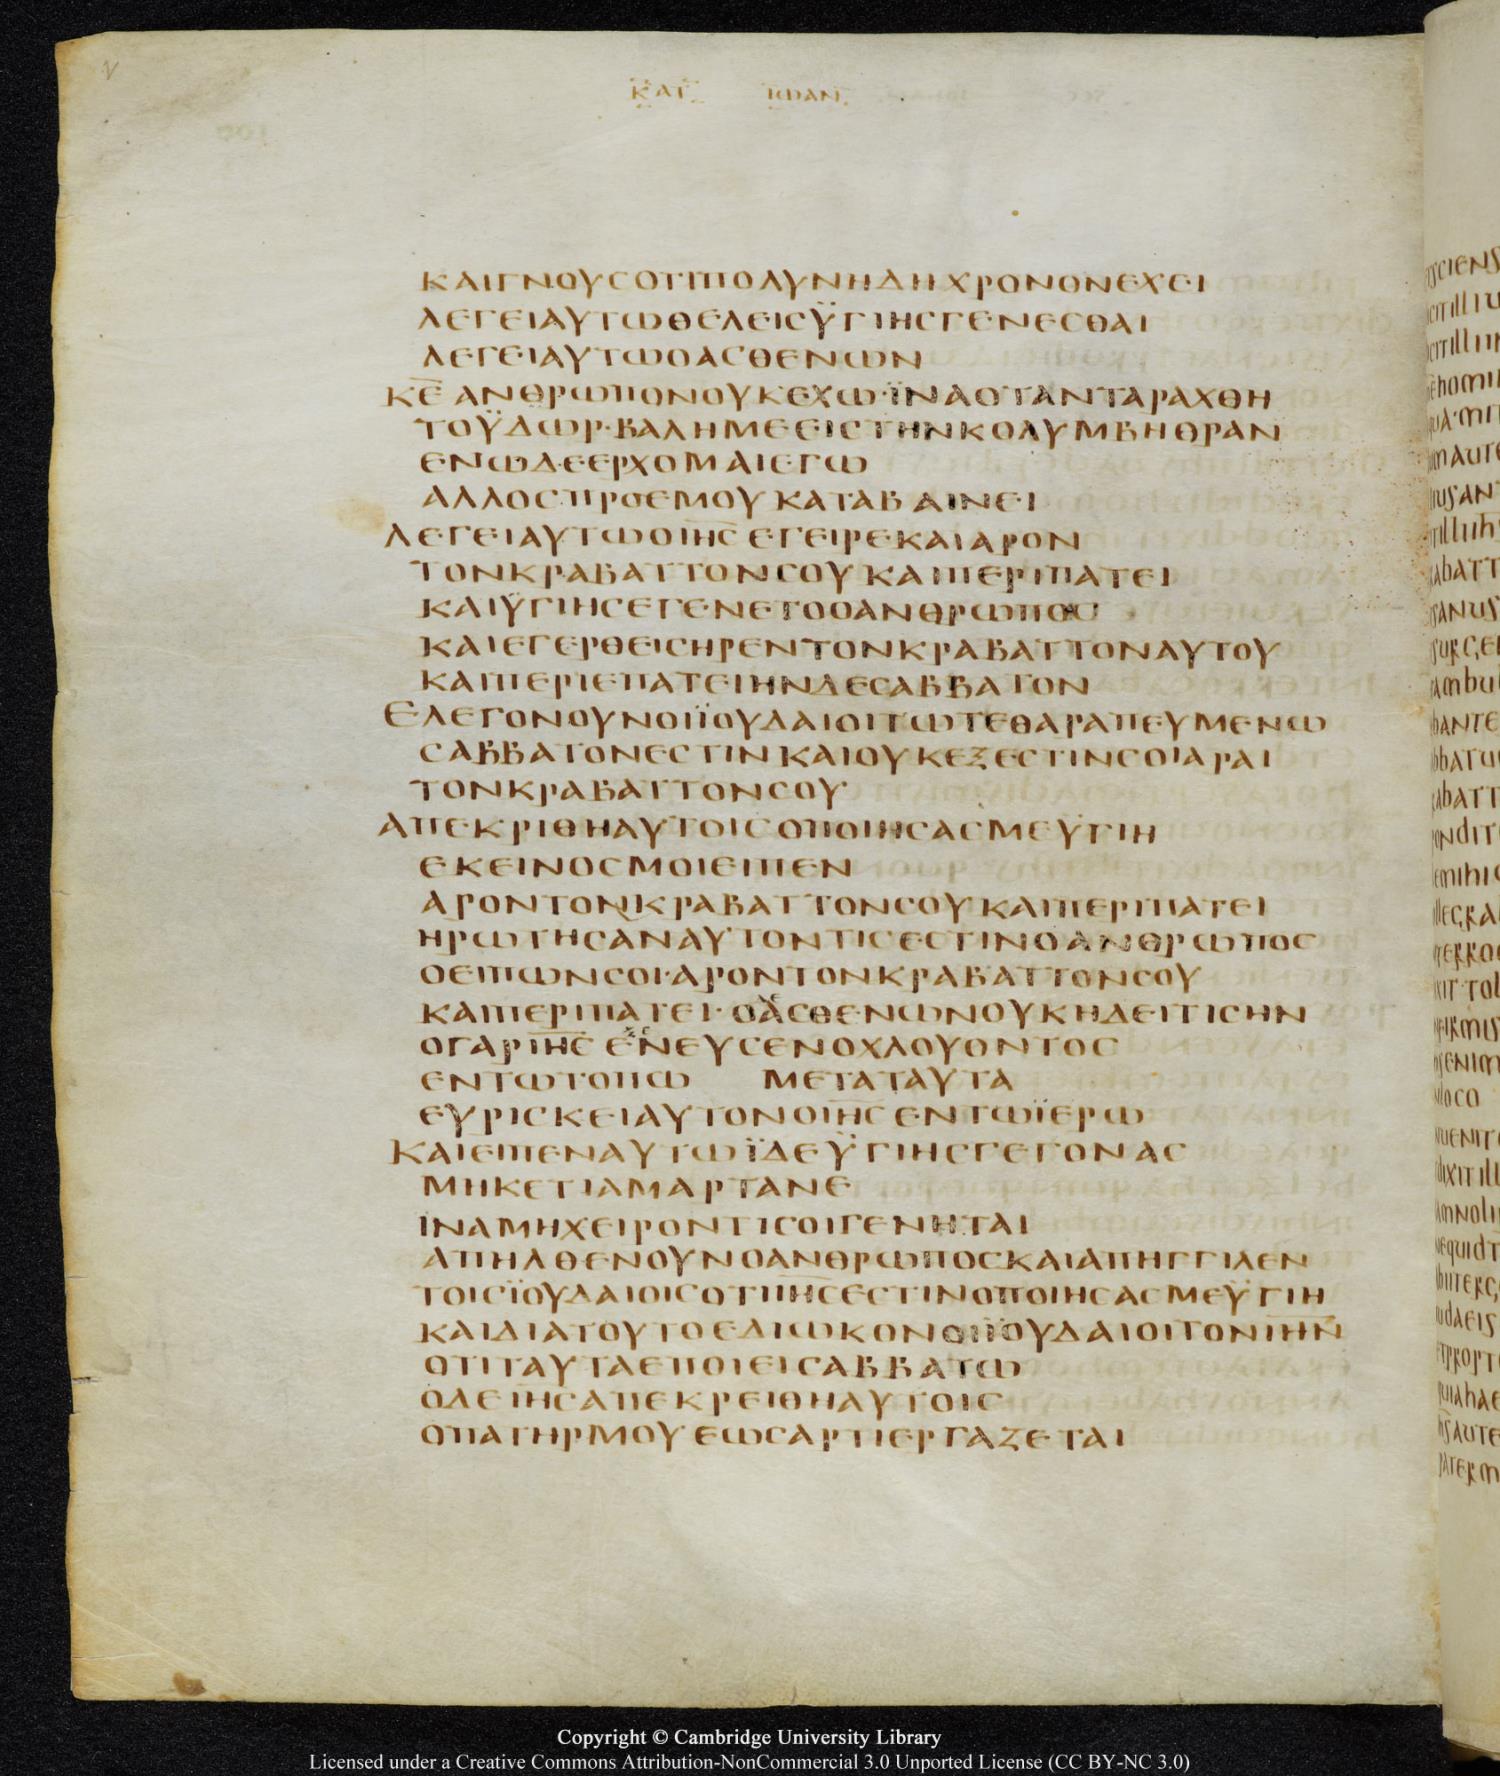 ΚΑΤ ΙΩΑΝ
ΚΑΙΓΝΟΥСΟΤΙΠΟΛΥΝΗΔΗΧΡΟΝΟΝΕΧΕΙ
ΛΕΓΕΙΑΥΤΩΘΕΛΕΙСΫΓΙΗСΓΕΝΕСΘΑΙ
ΛΕΓΕΙΑΥΤΩΟΑСΘΕΝΩΝ
Κ̅Ε̅ ΑΝΘΡΩΠΟΝΟΥΚΕΧΩ·ΪΝΑΟΤΑΝΤΑΡΑΧΘΗ
ΤΟΫΔΩΡ·ΒΑΛΗΜΕΕΙСΤΗΝΚΟΛΥΜΒΗΘΡΑΝ
ΕΝΩΔΕΕΡΧΟΜΑΙΕΓΩ
ΑΛΛΟСΠΡΟΕΜΟΥΚΑΤΑΒΑΙΝΕΙ
ΛΕΓΕΙΑΥΤΩΟΙ̅Η̅С̅ΕΓΕΙΡΕΚΑΙΑΡΟΝ
ΤΟΝΚΡΑΒΑΤΤΟΝСΟΥΚΑΙΠΕΡΙΠΑΤΕΙ
ΚΑΙΫΓΙΗСΕΓΕΝΕΤΟΟΑΝΘΡΩΠΟС
ΚΑΙΕΓΕΡΘΕΙСΗΡΕΝΤΟΝΚΡΑΒΑΤΤΟΝΑΥΤΟΥ
ΚΑΙΠΕΡΙΕΠΑΤΕΙΗΝΔΕСΑΒΒΑΤΟΝ
ΕΛΕΓΟΝΟΥΝΟΙΪΟΥΔΑΙΟΙΤΩΤΕΘΑΡΑΠΕΥΜΕΝΩ
СΑΒΒΑΤΟΝΕСΤΙΝΚΑΙΟΥΚΕΞΕСΤΙΝСΟΙΑΡΑΙ
ΤΟΝΚΡΑΒΑΤΤΟΝСΟΥ
ΑΠΕΚΡΙΘΗΑΥΤΟΙСΟΠΟΙΗСΑСΜΕΫΓΙΗ
ΕΚΕΙΝΟСΜΟΙΕΙΠΕΝ
ΑΡΟΝΤΟΝΚΡΑΒΑΤΤΟΝСΟΥΚΑΙΠΕΡΙΠΑΤΕΙ
ΗΡΩΤΗСΑΝΑΥΤΟΝΤΙСΕСΤΙΝΟΑΝΘΡΩΠΟС
ΟΕΙΠΩΝСΟΙ·ΑΡΟΝΤΟΝΚΡΑΒΑΤΤΟΝСΟΥ
ΚΑΙΠΕΡΙΠΑΤΕΙ·ΟΑСΘΕΝΩΝΟΥΚΗΔΕΙΤΙСΗΝ
ΟΓΑΡΙ̅Η̅С̅ΕΝΕΥСΕΝΟΧΛΟΥΟΝΤΟС
ΕΝΤΩΤΟΠΩ ΜΕΤΑΤΑΥΤΑ
ΕΥΡΙСΚΕΙΑΥΤΟΝΟΙ̅Η̅С̅ΕΝΤΩΪΕΡΩ
ΚΑΙΕΙΠΕΝΑΥΤΩΪΔΕΫΓΙΗСΓΕΓΟΝΑС
ΜΗΚΕΤΙΑΜΑΡΤΑΝΕ
ΙΝΑΜΗΧΕΙΡΟΝΤΙСΟΙΓΕΝΗΤΑΙ
ΑΠΗΛΘΕΝΟΥΝΟΑΝΘΡΩΠΟСΚΑΙΑΠΗΓΓΙΛΕΝ
ΤΟΙСΪΟΥΔΑΙΟΙСΟΤΙΙ̅Η̅С̅ΕСΤΙΝΟΠΟΙΗСΑСΜΕΫΓΙΗ
ΚΑΙΔΙΑΤΟΥΤΟΕΔΙΩΚΟΝΟΙΪΟΥΔΑΙΟΙΤΟΝΙ̅Η̅Ν̅
ΟΤΙΤΑΥΤΑΕΠΟΙΕΙСΑΒΒΑΤΩ
ΟΔΕΙ̅Η̅С̅ΑΠΕΚΡΕΙΘΗΑΥΤΟΙС
ΟΠΑΤΗΡΜΟΥΕΩСΑΡΤΙΕΡΓΑΖΕΤΑΙ
Copyright © Cambridge University Library
Licensed under a Creative Commons Attribution-NonCommercial 3.0 Unported License (CC BY-NC 3.0)